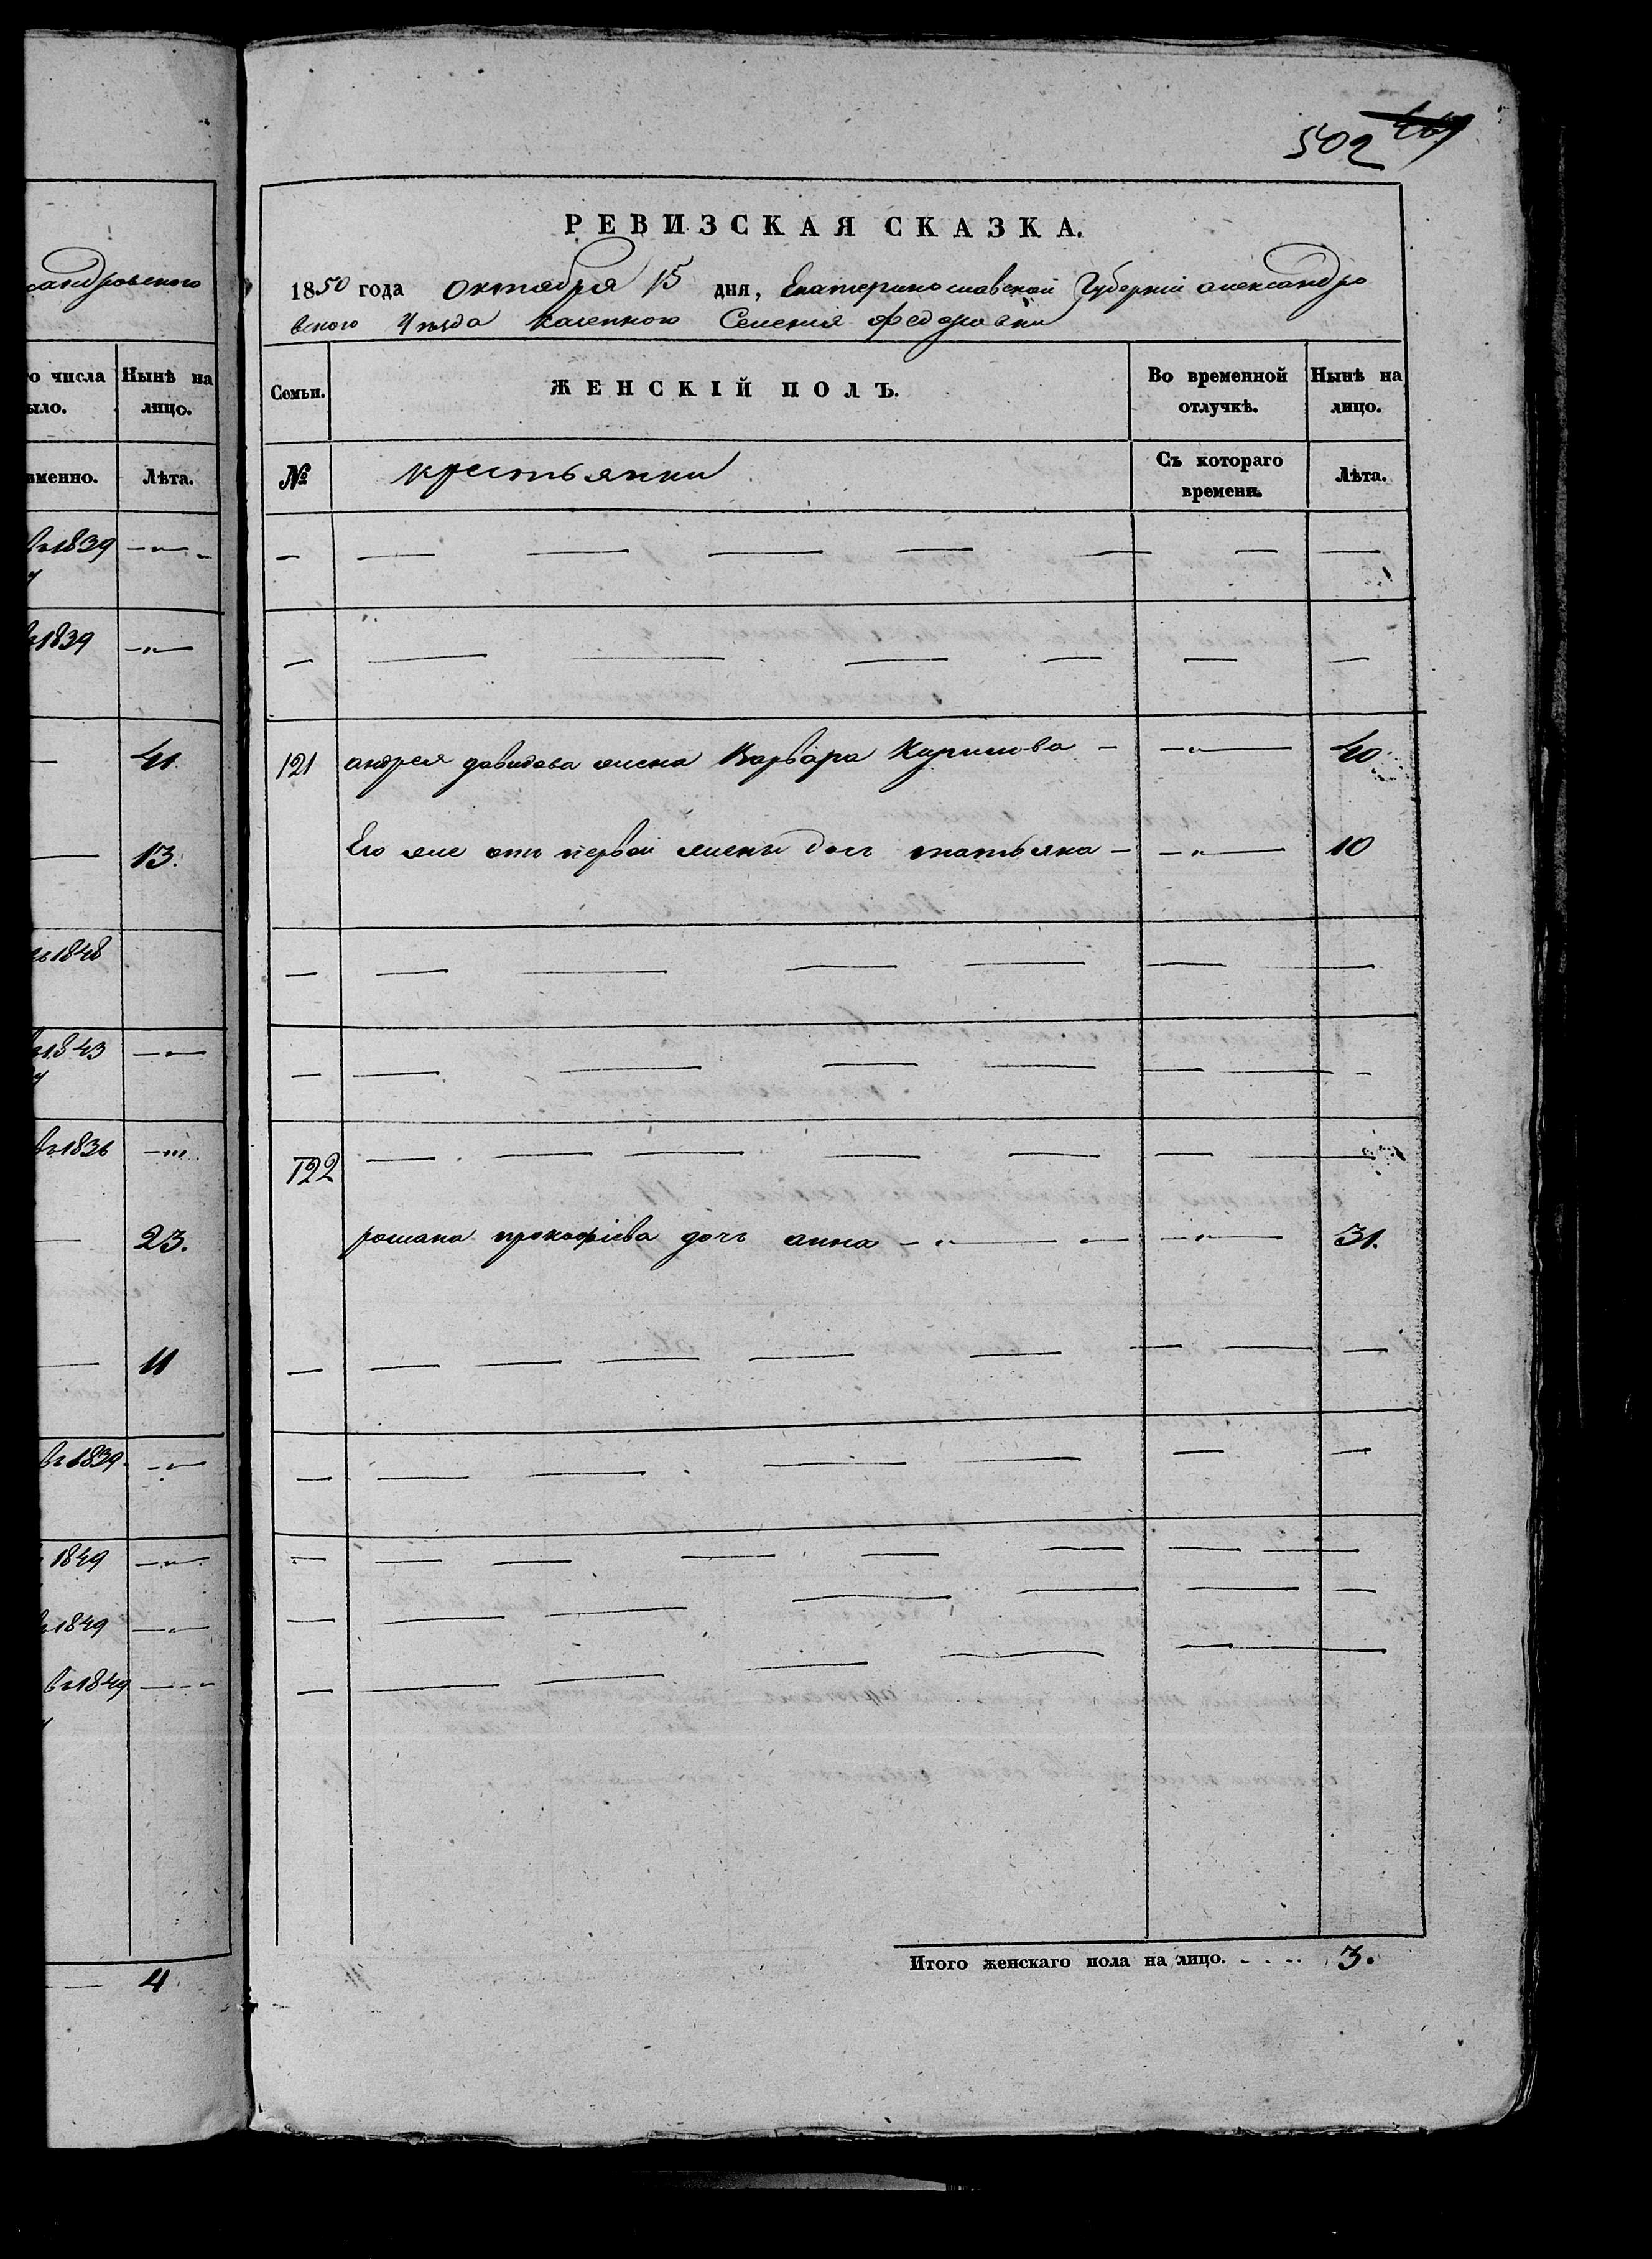 сандровского
го числа Нынѣ на
ыло. лицо.
именно. Лѣта.
въ 1839 — „ —
въ 1839 — „ —
— 41
— 13.
въ 1848
въ 1843 — „ —
въ 1836 — „ —
— 23.
— 11
въ 1839 — „ —
1849 — „ —
въ 1849 — „ —
въ 1849 — „ —
— 4.
502 469
РЕВИЗСКАЯ СКАЗКА.
1850 года октября 15 дня, Екатеринославской Губерніи александро
вского Уѣзда казенного Селения Федоровки
Семьи. ЖЕНСКІЙ ПОЛЪ. Во временной отлучкѣ. Нынѣ на лицо.
№ крестьянки Съ котораго времени. Лѣта.
121 андрея давидова жена Варвара Кирилова — — „ — 40.
Его же отъ первой жены дочь татьяна — — „ — 10
122
романа прокофіева дочь анна — „ — — — „ — 31.
Итого женскаго пола на лицо. . . . . 3.